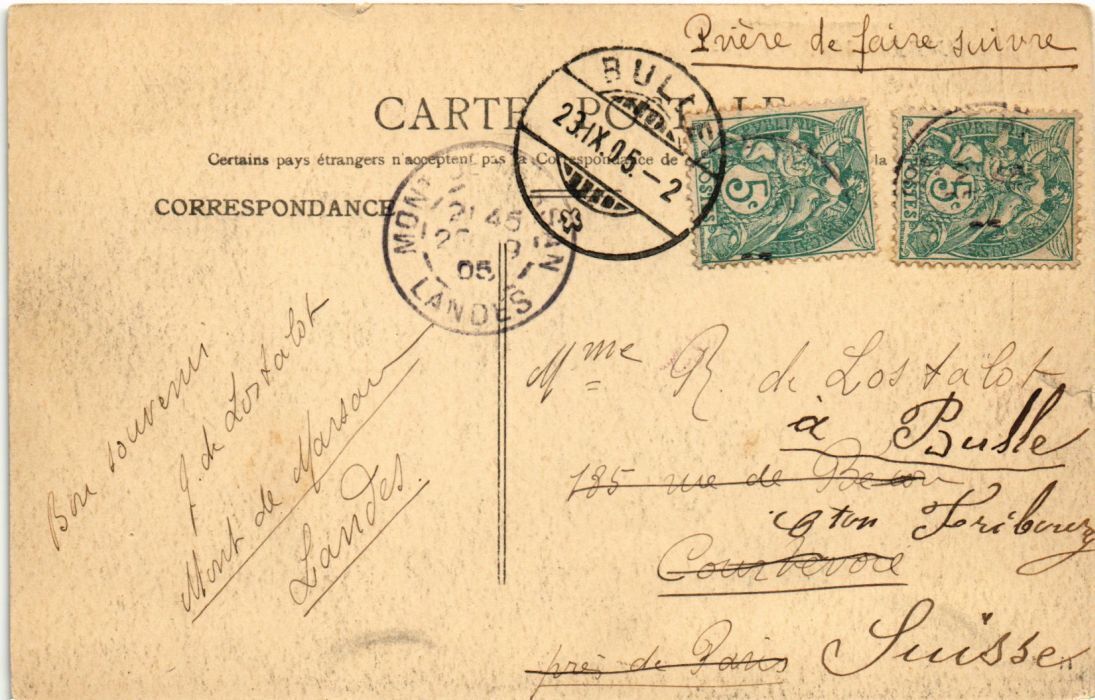 Prière de faire suivre
CARTE
Certains pays étrangers n'acceptent pas la Correspondance de la
CORRESPONDANCE
BULLE
23.IX.05.-2
MONT SAN
21 45
05
LANDES
5
POSTES
5
POSTES
Bon souvenir
J. de Lostalot
Mont de Marsan
Landes.
Mme R. de Lostalot
à Bulle
185 rue de Becon
Cton Fribourg
Courbevoie
près de Paris
Suisse